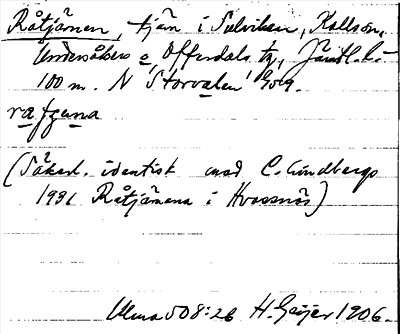 Råtjärnen, tjärn i Sulviken, Kallsdn,
Undersåkers o. Offerdals tg, Jämtl. l.
100 m. N Storvalen
råtjana
(Säkerl. identisk med C. Lindbergs
1931 Råtjärnarna i Hvassnäs)
Ulma 508:26 H. Geijer 1906.